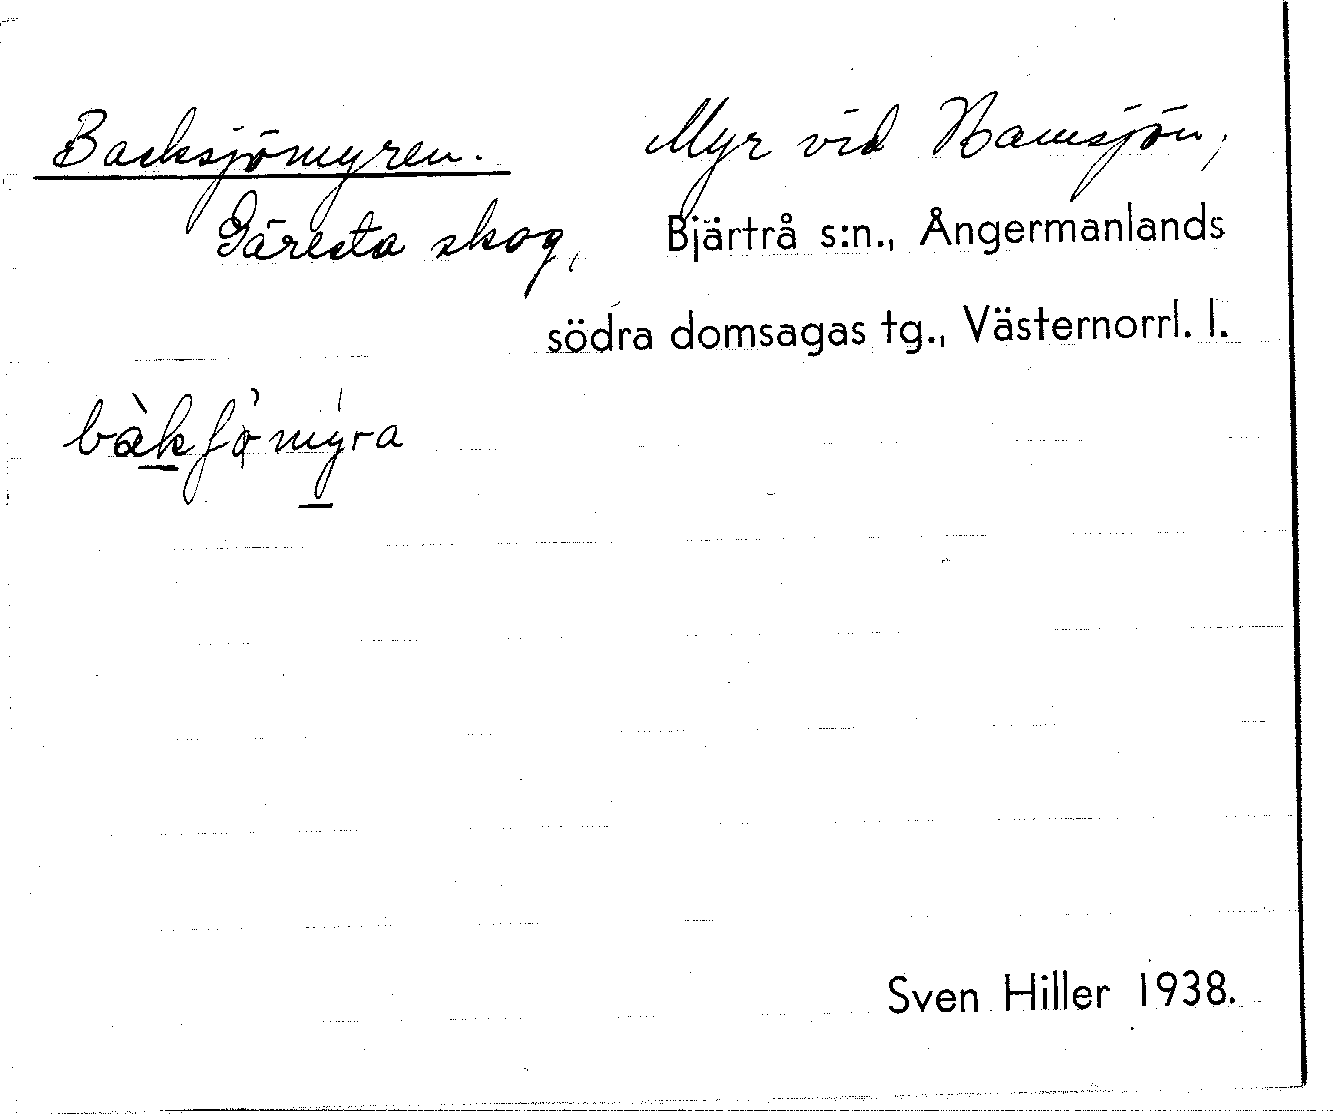 Backsjömyren. Myr vid Hamsjön,
Gäresta skog, Bjärtrå s:n., Ångermanlands
södra domsagas tg., Västernorrl. l.
Sven Hiller 1938.